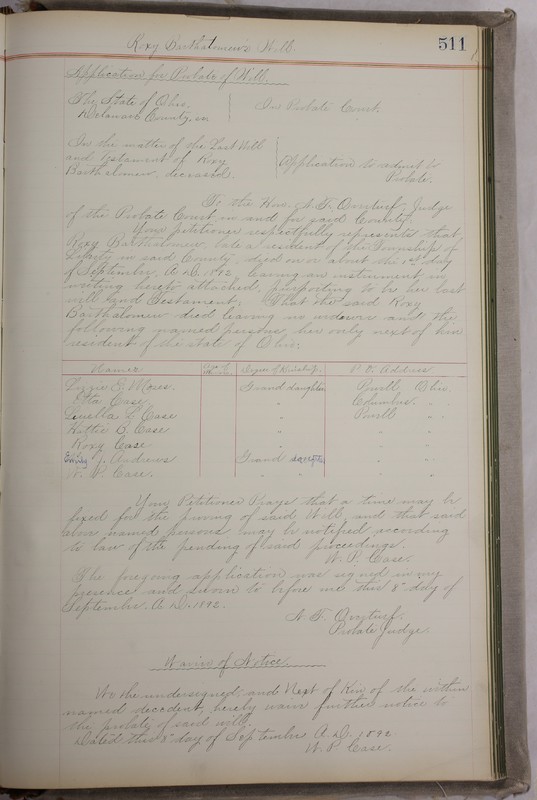 Roxy Bartholomew's Will.
511
Application for Probate of Will.
The State of Ohio,
Delaware County, ss
In Probate Court.
In the matter of the Last Will
and Testament of Roxy
Bartholomew, deceased.
Application to admit to
Probate.
To the Hon. Judge
of the Probate Court in and for said County;
Your petitioner respectfully represents that
Roxy Bartholomew, late a resident of the Township of
Liberty in said County, died on or about the 1st day
of September, A.D. 1892, leaving an instrument in
writing hereto attached, purporting to be her last
will and Testament; That the said Roxy
Bartholomew died leaving no widower and the
following named persons her only next of kin
resident of the state of Ohio:
Names Degree of Kinship. P.O. Address
Lizzie E. Moses. Grand daughter Powell Ohio.
Etta Case. " Columbus " "
Luella L. Case " Powell " "
Hattie B. Case " " "
Roxy Case " " "
J. Andrews Grand " "
W. P. Case. " " "
Your Petitioner Prays that a time may be
fixed for the proving of said Will, and that said
above named persons may be notified according
to law of the pending of said proceedings.
W. P. Case.
The foregoing application was signed in my
presence and sworn to before me this 8" day of
September A.D. 1892.
Probate Judge.
Waiver of Notice.
We the undersigned, and Next of Kin of the within
named decedent, hereby waive further notice to
the probate of said will.
Dated this 8" day of September A.D. 1892
W. P. Case.